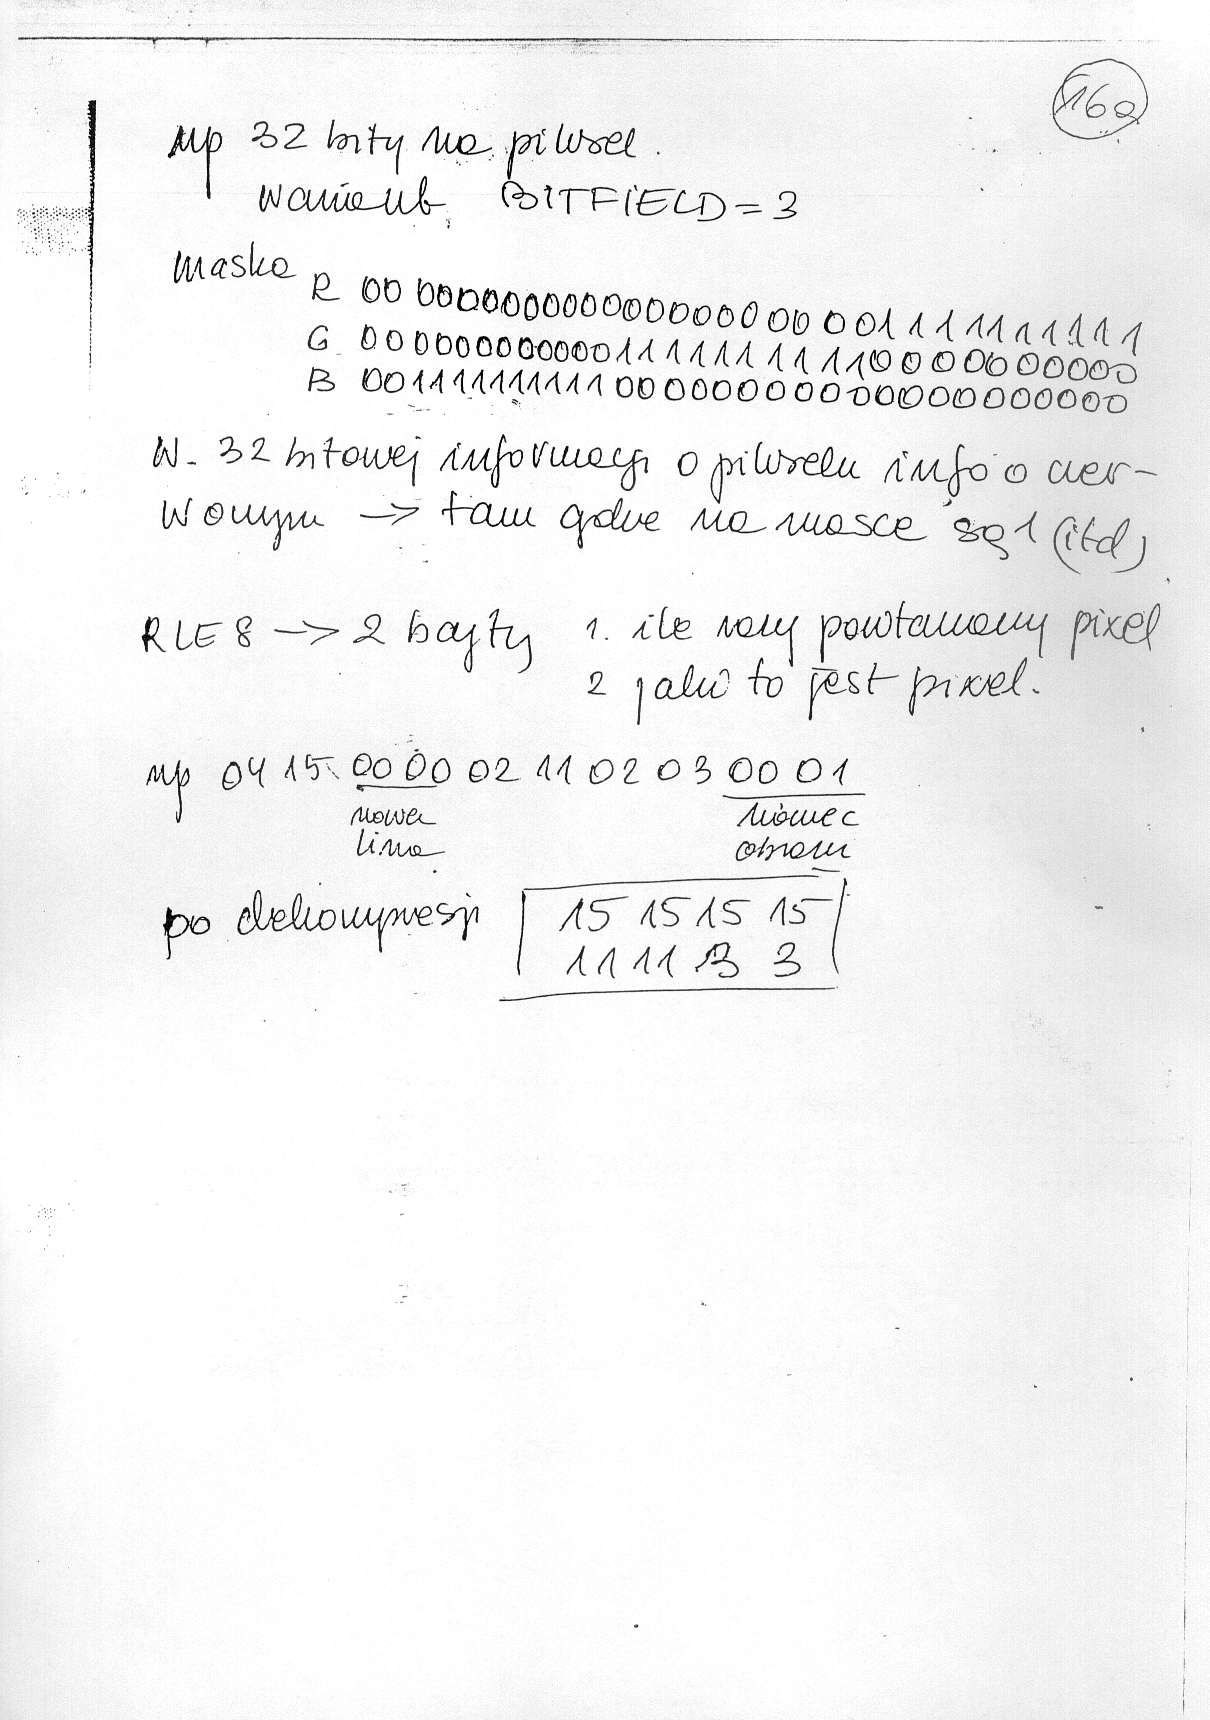 16a
np 32 bity na piksel.
warunek BITFIELD = 3
maska
R 00 000000000000000000 00 0 0 1 1 1 1 1 1 1 1 1 1
G 0000000000001111111111 0000000000
B 00 1111111111 00000000000000000000
W 32 bitowej informacji o pikselu info o czer-
wonym → tam gdzie na masce są 1 (itd)
RLE 8 → 2 bajty 1. ile razy powtarzany pixel
2 jaki to jest pixel.
np 04 15 00 00 02 11 02 03 00 01
nowa koniec
linia obrazu
po dekompresji 15 15 15 15
11 11 3 3